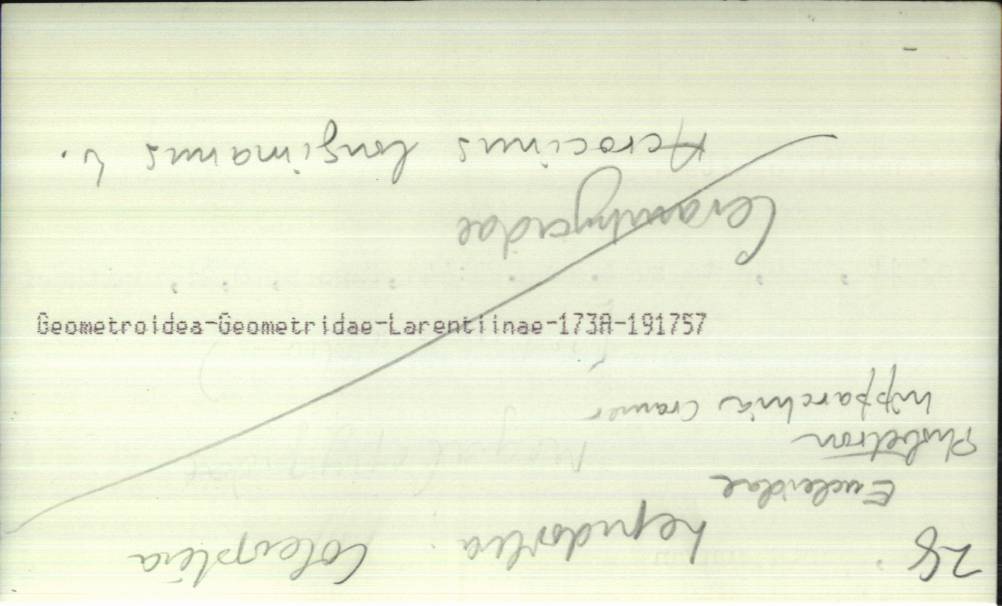 Geometroidea-Geometridae-Larentiinae-173A-191757
28
Lepidoptera. Coleoptera
Eucleidae
Phobetron
hipparchia Cramer
Cerambycidae
Acrocinus longimanus L.